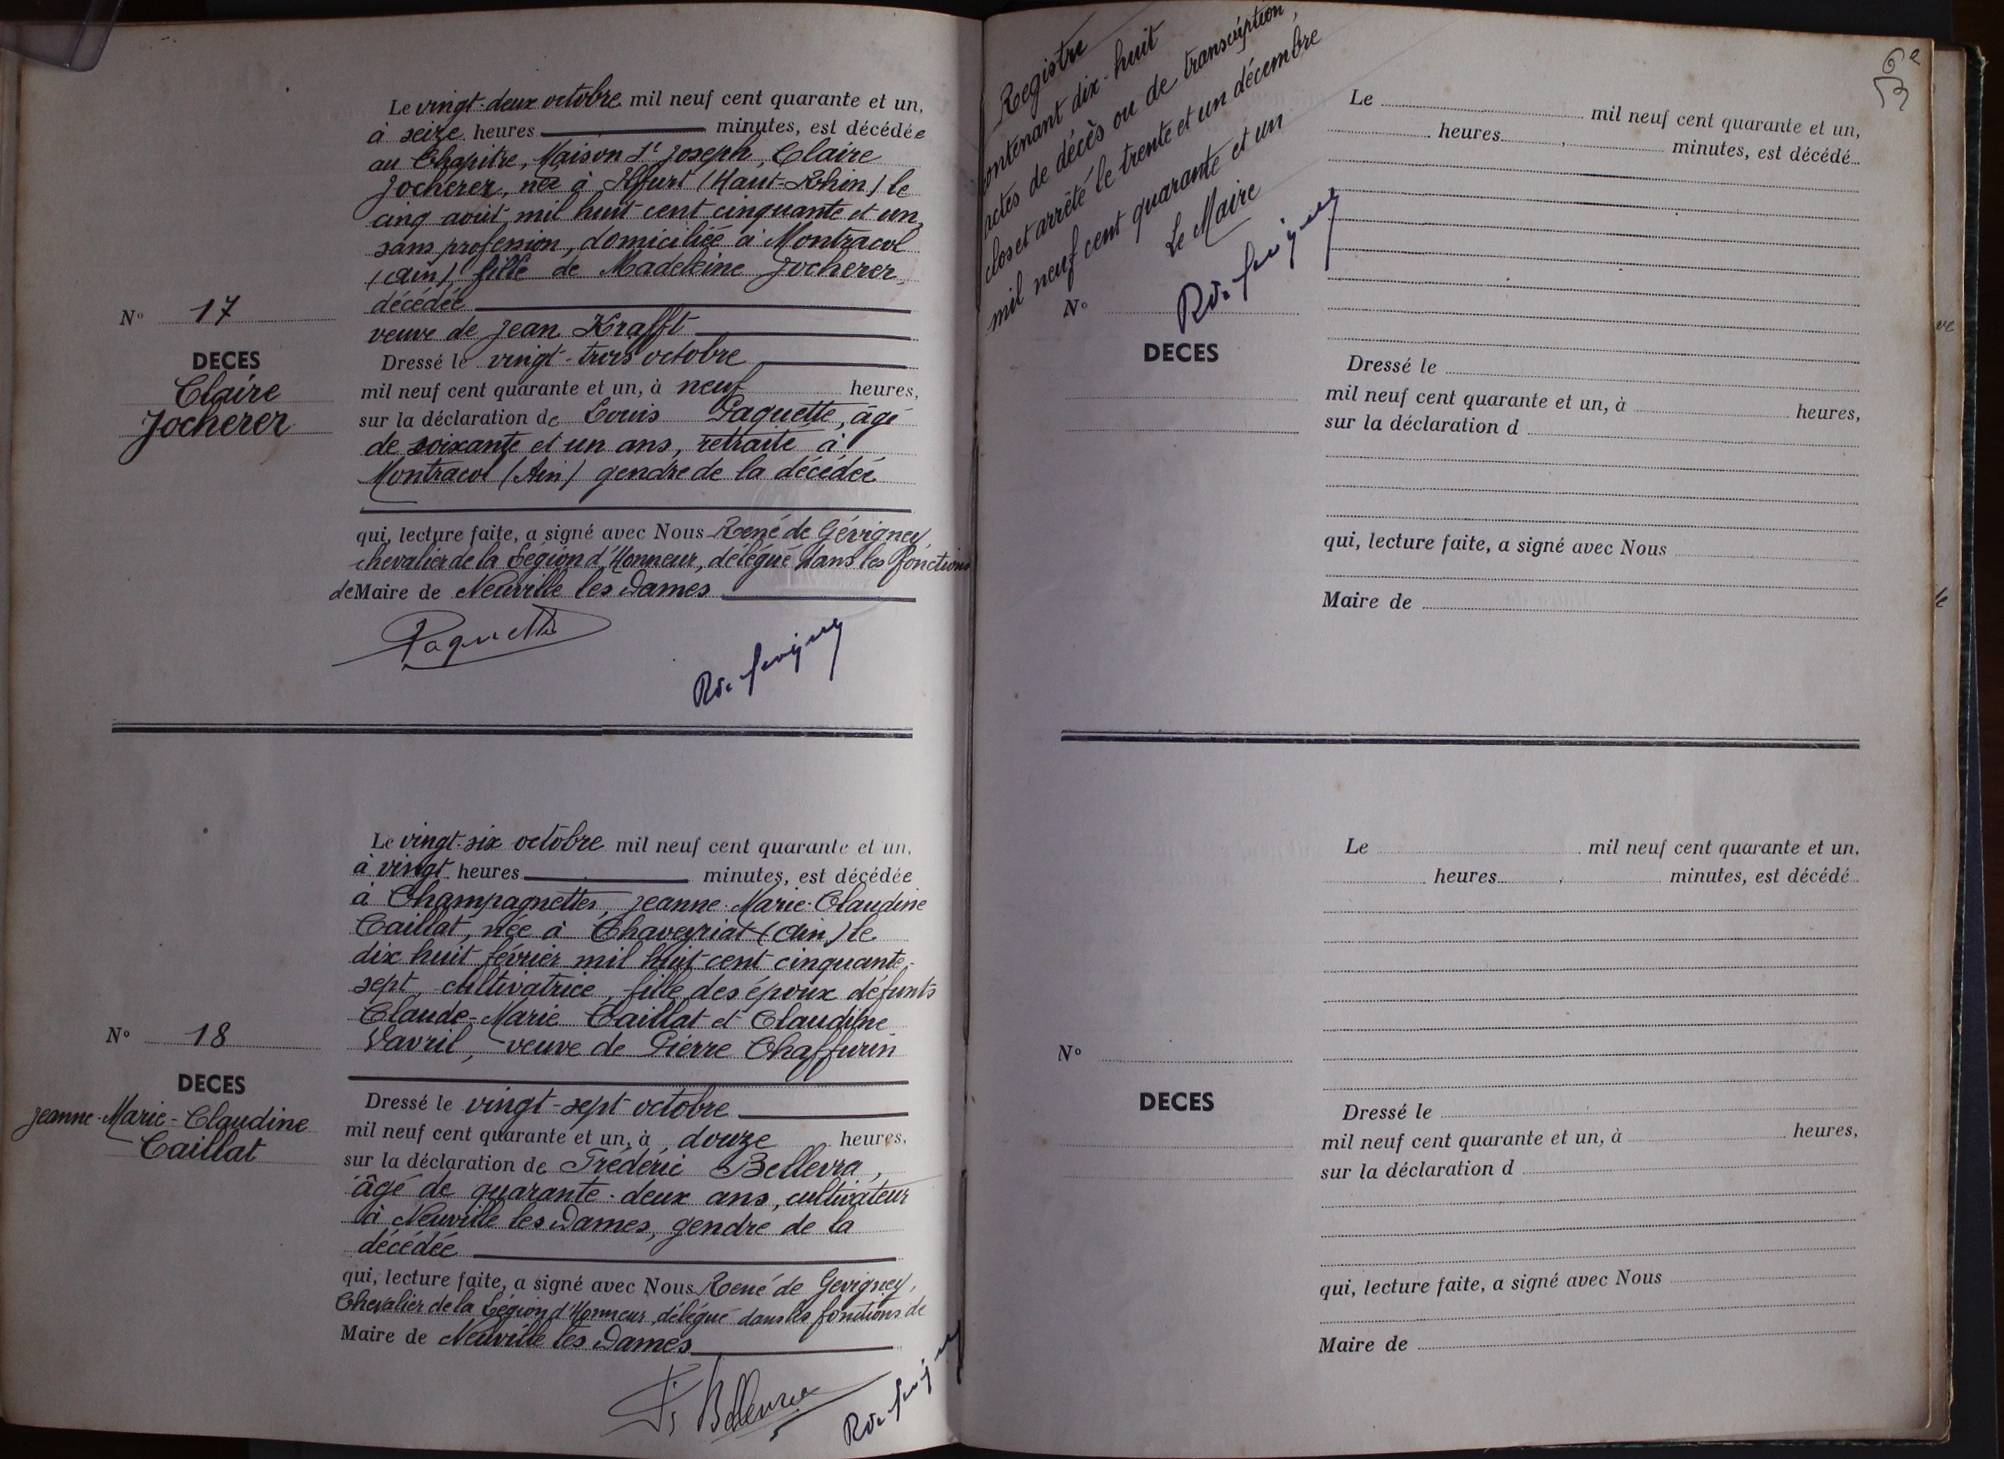 Le vingt-deux octobre mil neuf cent quarante et un,
à seize heures minutes, est décédée
au Chapitre, Maison St Joseph, Claire
Jocherer, née à Illfurt (Haut-Rhin) le
cinq août mil huit cent cinquante et un,
sans profession, domiciliée à Montracol
(Ain) fille de Madeleine Jocherer,
décédée
veuve de Jean Krafft
Nº 17
DECES
Claire
Jocherer
Dressé le vingt-trois octobre
mil neuf cent quarante et un, à neuf heures,
sur la déclaration de Louis Paquette, âgé
de soixante et un ans, retraité à
Montracol (Ain) gendre de la décédée
qui, lecture faite, a signé avec Nous René de Gévigney,
chevalier de la Légion d'Honneur, délégué dans les fonctions
de Maire de Neuville les Dames
Paquette
R. de Gévigney
Le vingt-six octobre mil neuf cent quarante et un,
à vingt heures minutes, est décédée
à Champagnettes, Jeanne-Marie-Claudine
Caillat, née à Chaveyriat (Ain) le
dix huit février mil huit cent cinquante-
sept, cultivatrice, fille des époux défunts
Claude-Marie Caillat et Claudine
Vavril, veuve de Pierre Chaffurin
Nº 18
DECES
Jeanne-Marie-Claudine
Caillat
Dressé le vingt-sept octobre
mil neuf cent quarante et un, à douze heures,
sur la déclaration de Frédéric Bellevra,
âgé de quarante-deux ans, cultivateur
à Neuville les Dames, gendre de la
décédée
qui, lecture faite, a signé avec Nous René de Gevigney,
Chevalier de la Légion d'Honneur, délégué dans les fonctions de
Maire de Neuville les Dames
R. de Gévigney
Registre
contenant dix-huit
actes de décès ou de transcription,
clos et arrêté le trente et un décembre
mil neuf cent quarante et un
Le Maire
R. de Gévigney
Le mil neuf cent quarante et un,
heures minutes, est décédé
Nº
DECES
Dressé le
mil neuf cent quarante et un, à heures,
sur la déclaration d
qui, lecture faite, a signé avec Nous
Maire de
Le mil neuf cent quarante et un,
heures minutes, est décédé
Nº
DECES
Dressé le
mil neuf cent quarante et un, à heures,
sur la déclaration d
qui, lecture faite, a signé avec Nous
Maire de